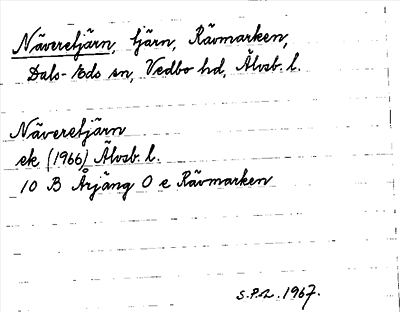 Näveretjärn, tjärn, Rävmarken,
Dals-Eds sn, Vedbo hd, Älvsb. l.
Näveretjärn
ek (1966) Älvsb. l.
10 B Årjäng O e Rävmarken
S.P.L. 1967.